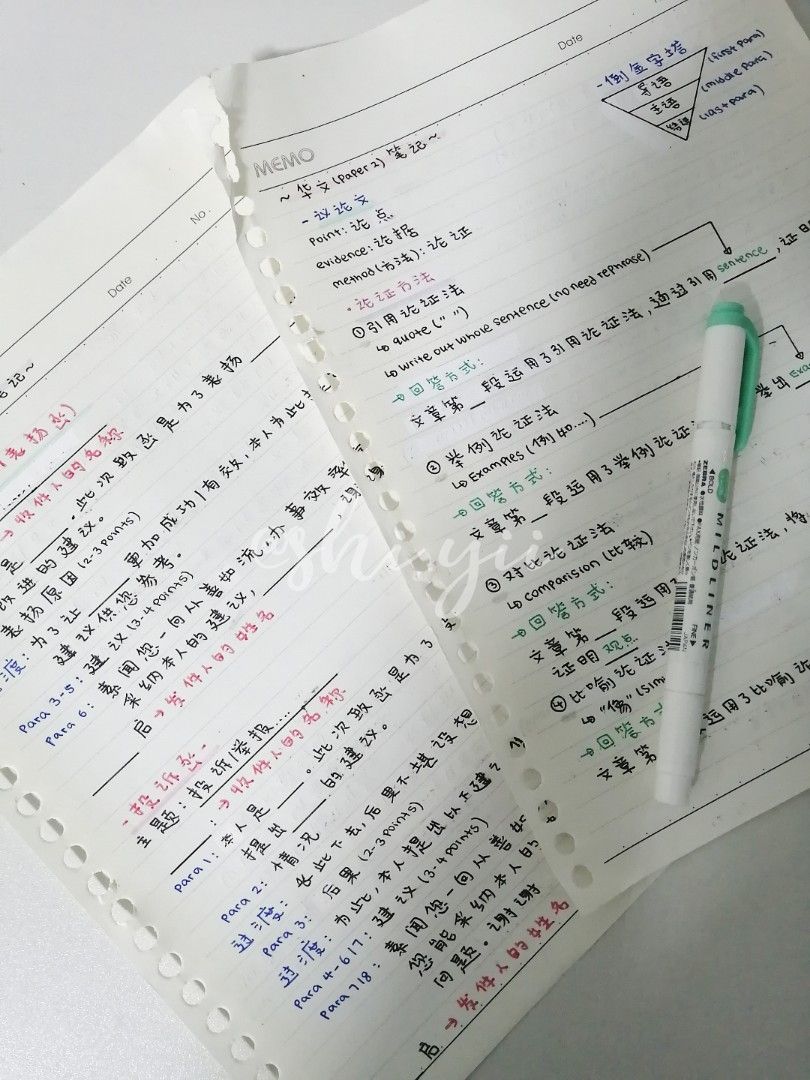 Date
No.
Date
记~
表扬函)
→ 收件人的名称
是 ____。此次致函是为了表扬
改进的建议。
表扬原因 (2-3 points)
过渡: 为了让 ____ 更加成功/有效,本人为此
建议供您参考。
Para 3-5: 建议 (3-4 points)
Para 6: 素闻您一向从善如流,办事效率
采纳本人的建议,
启 → 发件人的姓名
-投诉函-
主题: 投诉/举报......
____: → 收件人的名称
Para 1: 本人是 ____。此次致函是为了
并提出 ____ 的建议。
Para 2: 情况
过渡: 长此下去,后果不堪设想
Para 3: 后果 (2-3 points)
过渡: 为此,本人提出以下建
Para 4-6/7: 建议 (3-4 points)
Para 7/8: 素闻您一向从善如
您能采纳本人的
问题。谢谢
启 → 发件人的姓名
Date
MEMO
-倒金字塔
导语 (first para)
主语 (middle para)
结语 (last para)
~ 华文 (Paper 2) 笔记~
- 议论文
Point: 论点
evidence: 论据
method (方法): 论证
• 论证方法
① 引用论证法
↳ quote (" ")
↳ write out whole sentence (no need rephrase)
→ 回答方式:
文章第__段运用了引用论证法,通过引用 sentence,证明
② 举例论证法
↳ Examples (例如....)
→ 回答方式:
文章第__段运用了举例论证
举出 Exa
③ 对比论证法
↳ comparision (比较)
→ 回答方式:
文章第__段运用了
论证法,
证明 观点
④ 比喻论证
↳ "像" (sim
→ 回答方式
文章第
运用了比喻论
@shi.yii
BOLD
ZEBRA
MILDLINER
FINE